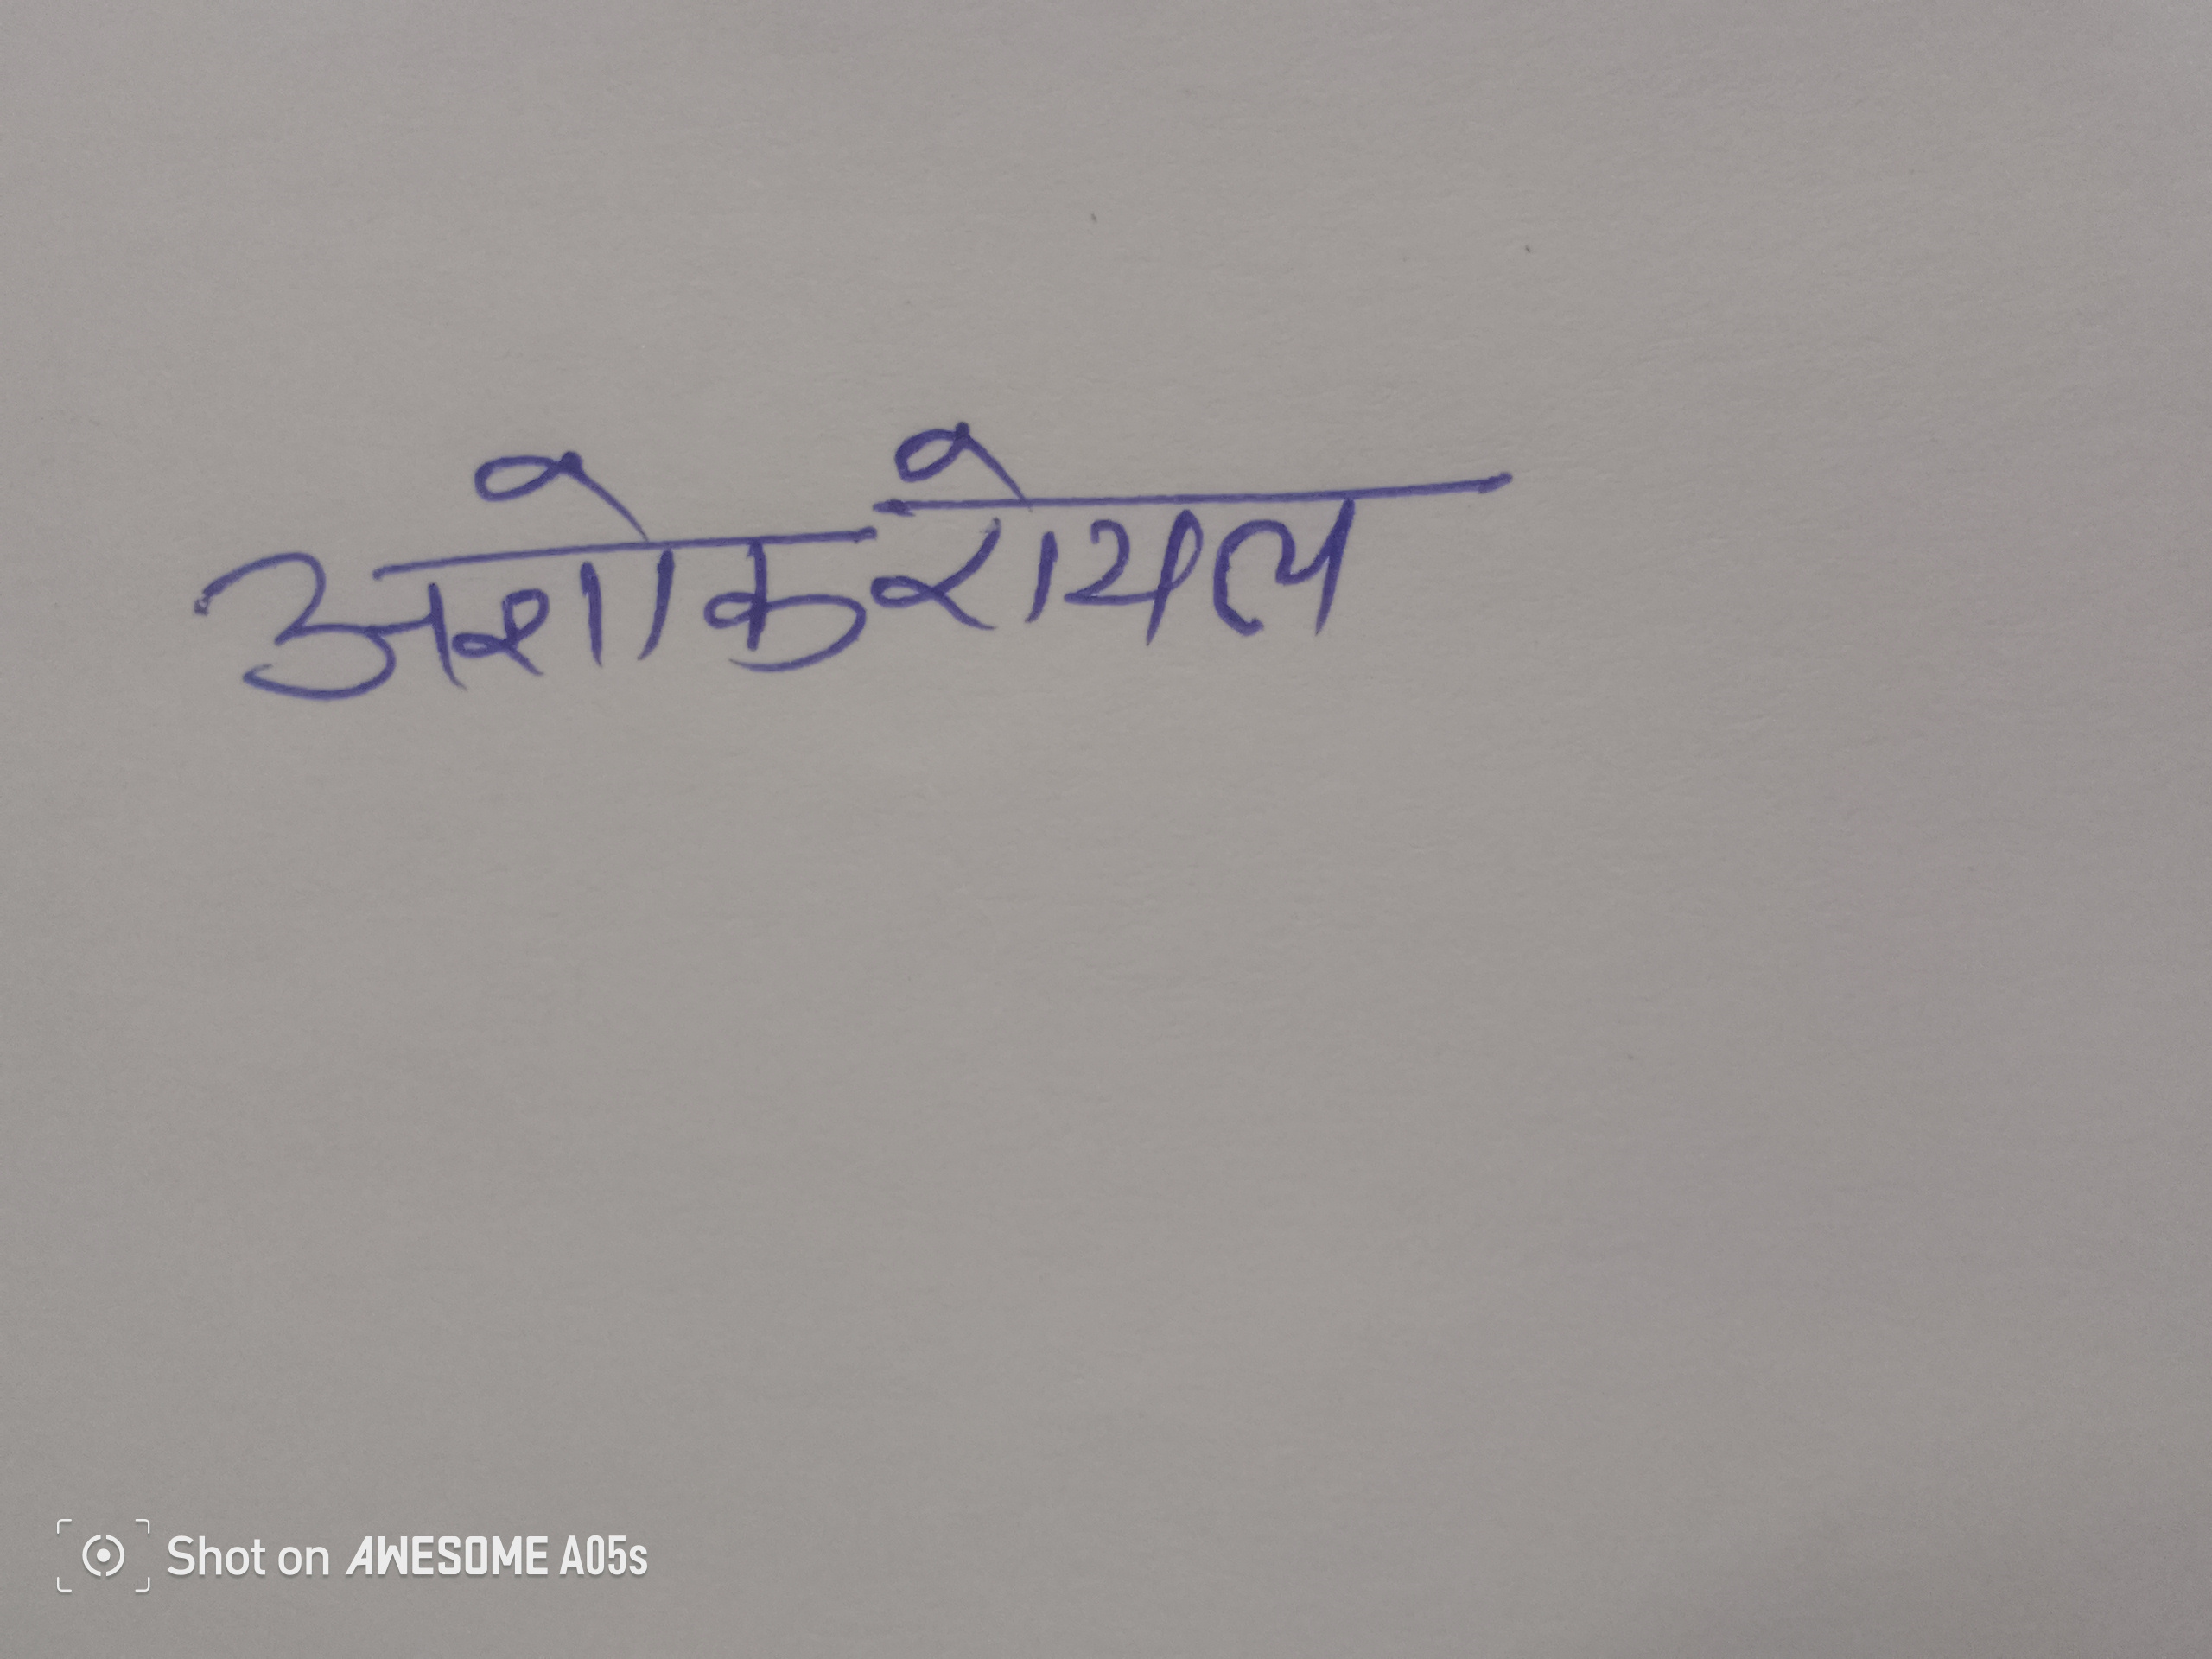 अशोक रोयल
Shot on AWESOME A05s